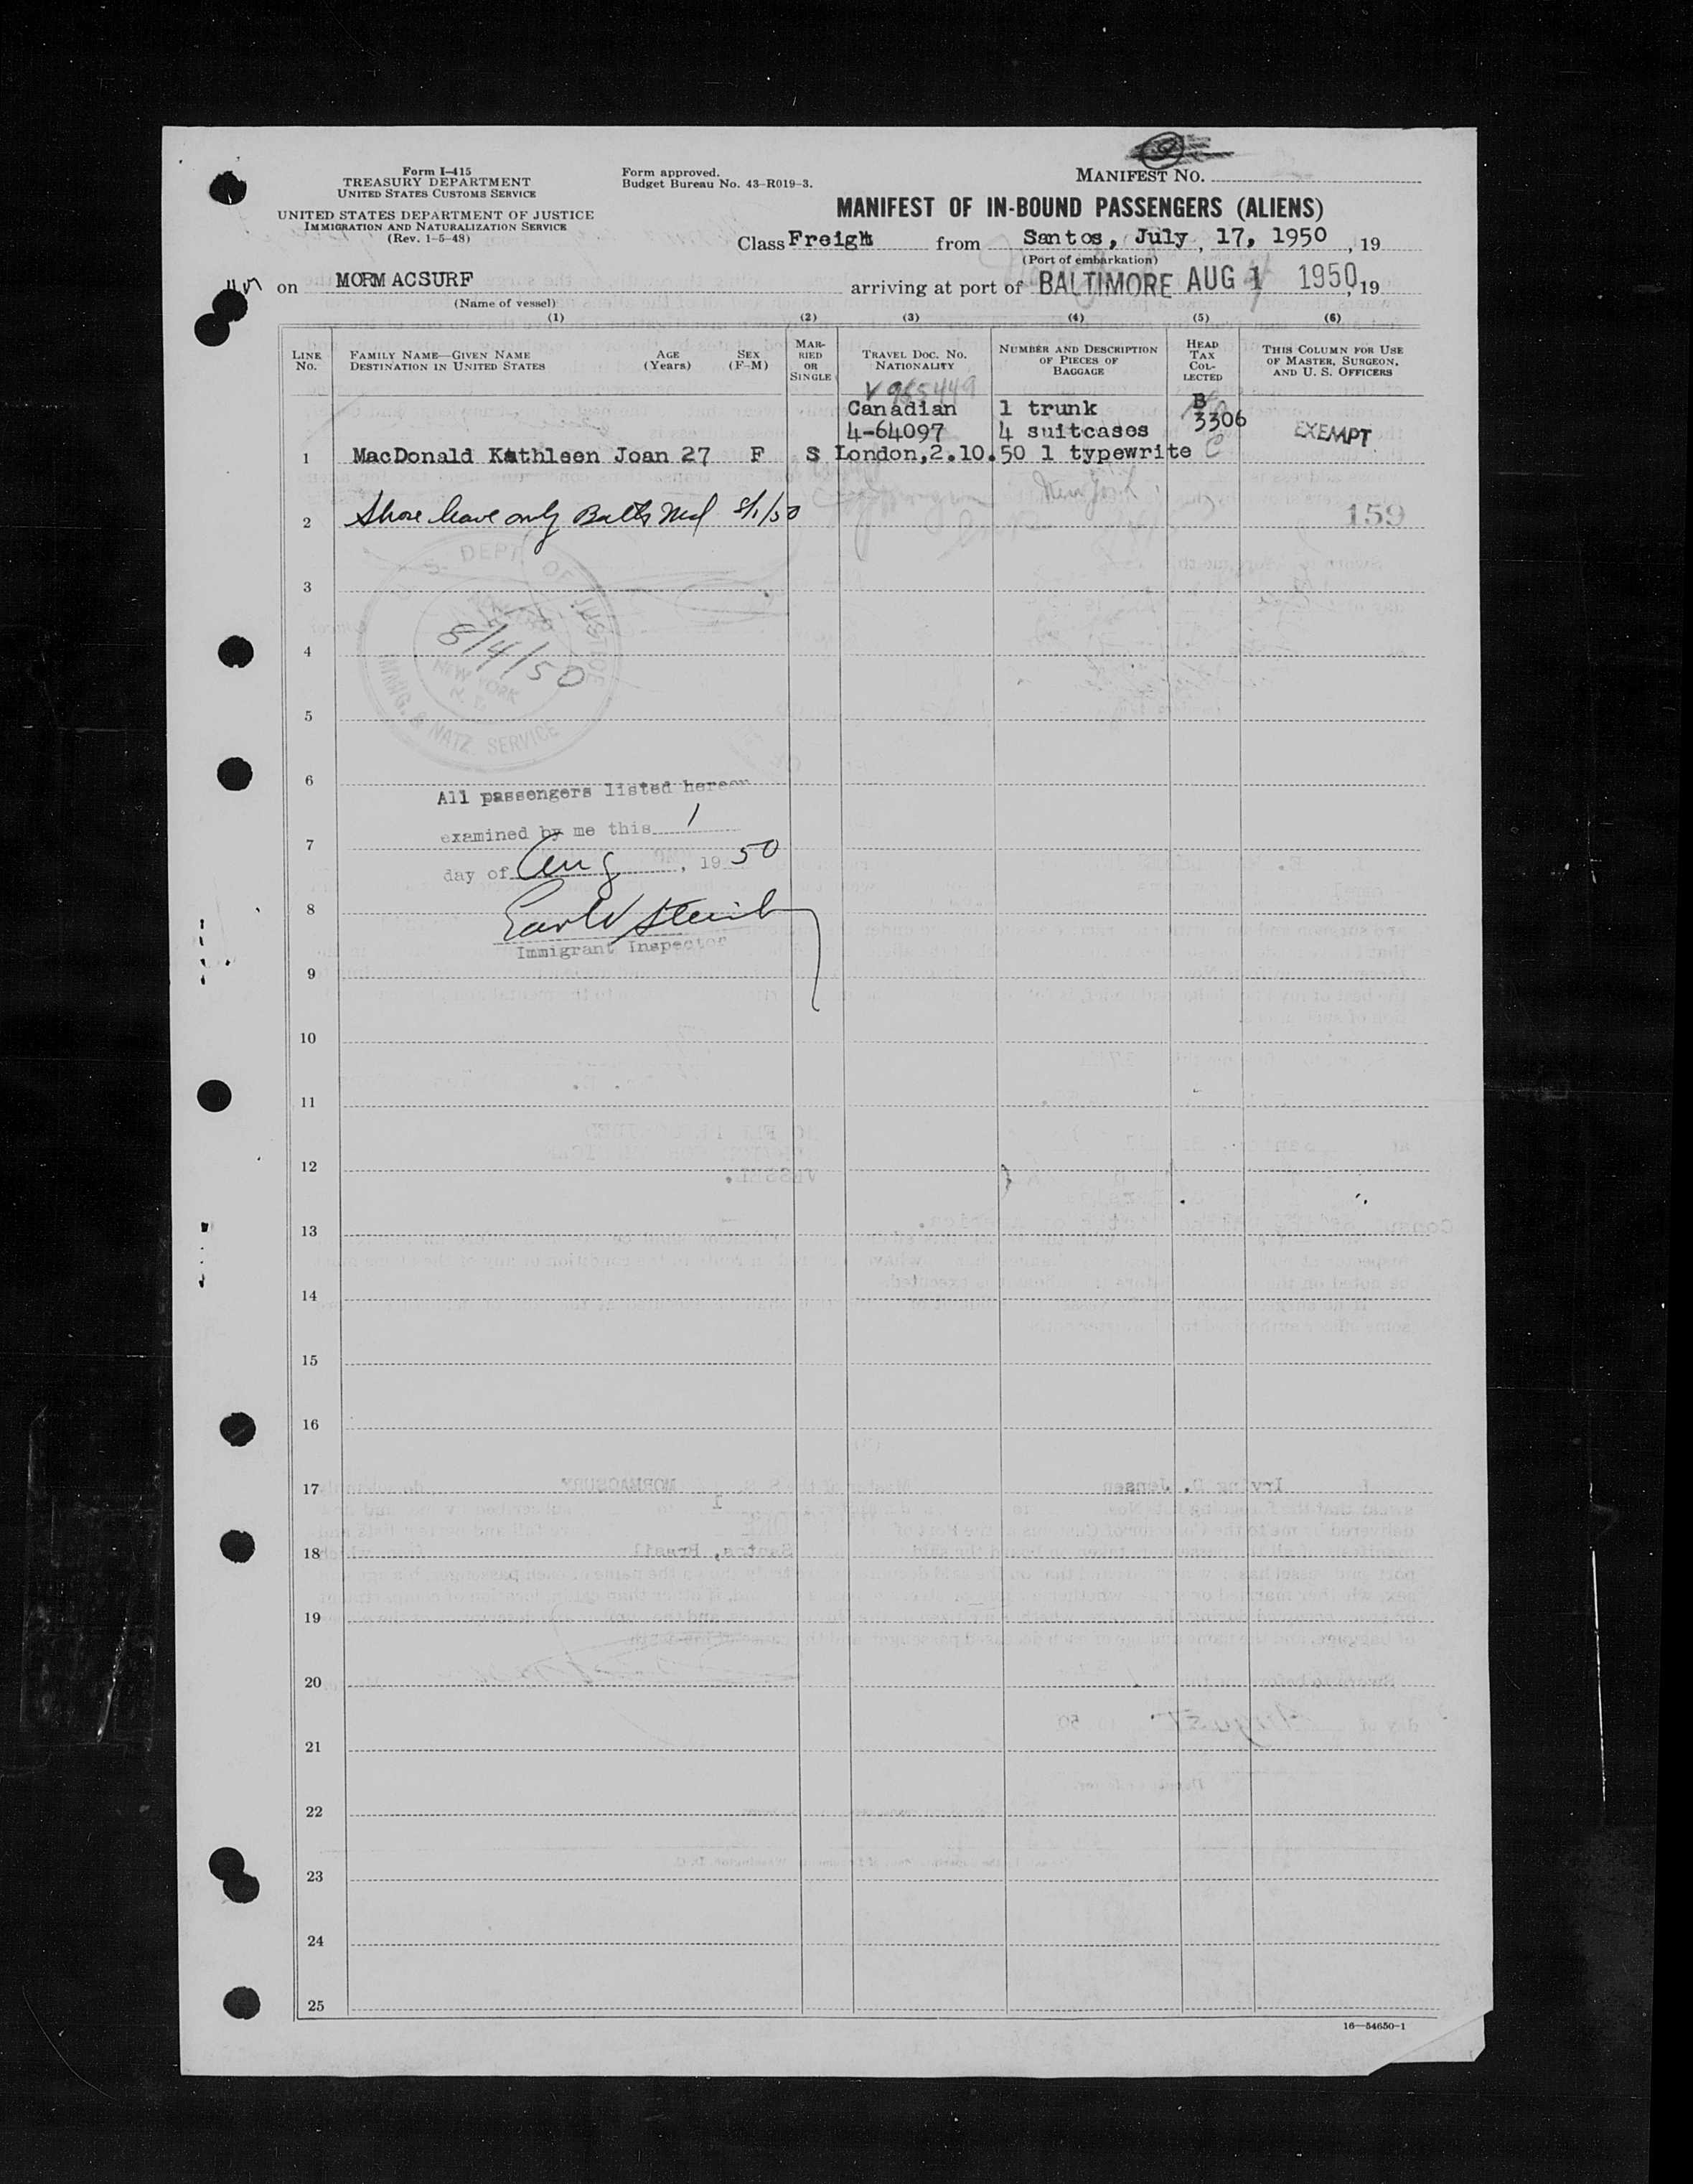 Form I-415
TREASURY DEPARTMENT
UNITED STATES CUSTOMS SERVICE
UNITED STATES DEPARTMENT OF JUSTICE
IMMIGRATION AND NATURALIZATION SERVICE
(Rev. 1-5-48)
Form approved.
Budget Bureau No. 43-R019-3.
MANIFEST NO.
MANIFEST OF IN-BOUND PASSENGERS (ALIENS)
Class Freight from Santos, July, 17, 1950, 19
(Port of embarkation)
on MORMACSURF arriving at port of BALTIMORE AUG 1 1950, 19
(Name of vessel)
(1) (2) (3) (4) (5) (6)
LINE No.
FAMILY NAME—GIVEN NAME
DESTINATION IN UNITED STATES
AGE (Years)
SEX (F-M)
MARRIED OR SINGLE
TRAVEL DOC. NO. NATIONALITY
NUMBER AND DESCRIPTION OF PIECES OF BAGGAGE
HEAD TAX COLLECTED
THIS COLUMN FOR USE OF MASTER, SURGEON, AND U. S. OFFICERS
V 965449
Canadian 1 trunk B
4-64097 4 suitcases 3306 EXEMPT
1 MacDonald Kathleen Joan 27 F S London, 2.10.50 1 typewrite C
New York
2 Shore leave only Balto Md 8/1/50 159
3
4
U. S. DEPT. OF JUSTICE
8/4/50
NEW YORK
IMMIG. & NATZ. SERVICE
5
6
All passengers listed hereon
examined by me this 1
7
day of Aug, 19 50
8
Immigrant Inspector
9
10
11
12
13
14
15
16
17
18
19
20
21
22
23
24
25
16—54650-1